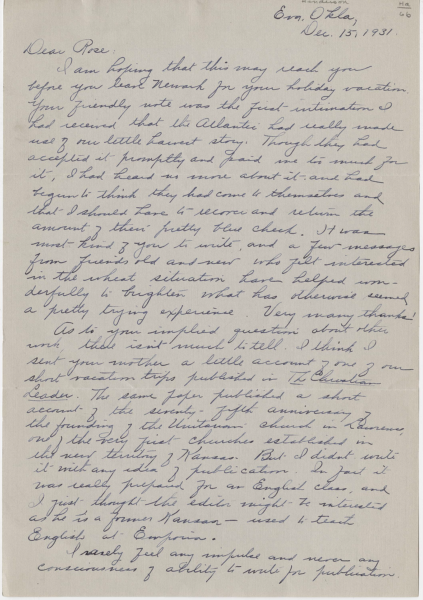 Eva, Okla,
Dec. 15, 1931.
Dear Rose:
I am hoping that this may reach you
before you leave Newark for your holiday vacation.
Your friendly note was the first intimation I
had received that the Atlantic had really made
use of our little harvest story. Though they had
accepted it promptly and paid me too much for
it, I had heard no more about it and had
begun to think they had come to themselves and
that I should have to recover and return the
amount of their pretty blue check. It was
most kind of you to write, and a few messages
from friends old and new who felt interested
in the wheat situation have helped won-
derfully to brighten what has otherwise seemed
a pretty trying experience. Very many thanks!
As to your implied question about other
work, there isn't much to tell. I think I
sent your mother a little account of one of our
short vacation trips published in The Christian
Leader. The same paper published a short
account of the seventy-fifth anniversary of
the founding of the Unitarian church in Lawrence,
one of the very first churches established in
the new territory of Kansas. But I didn't write
it with any idea of publication. In fact it
was really prepared for an English class, and
I just thought the editor might be interested
as he is a former Kansan — used to teach
English at Emporia.
I rarely feel any impulse and never any
consciousness of ability to write for publication.